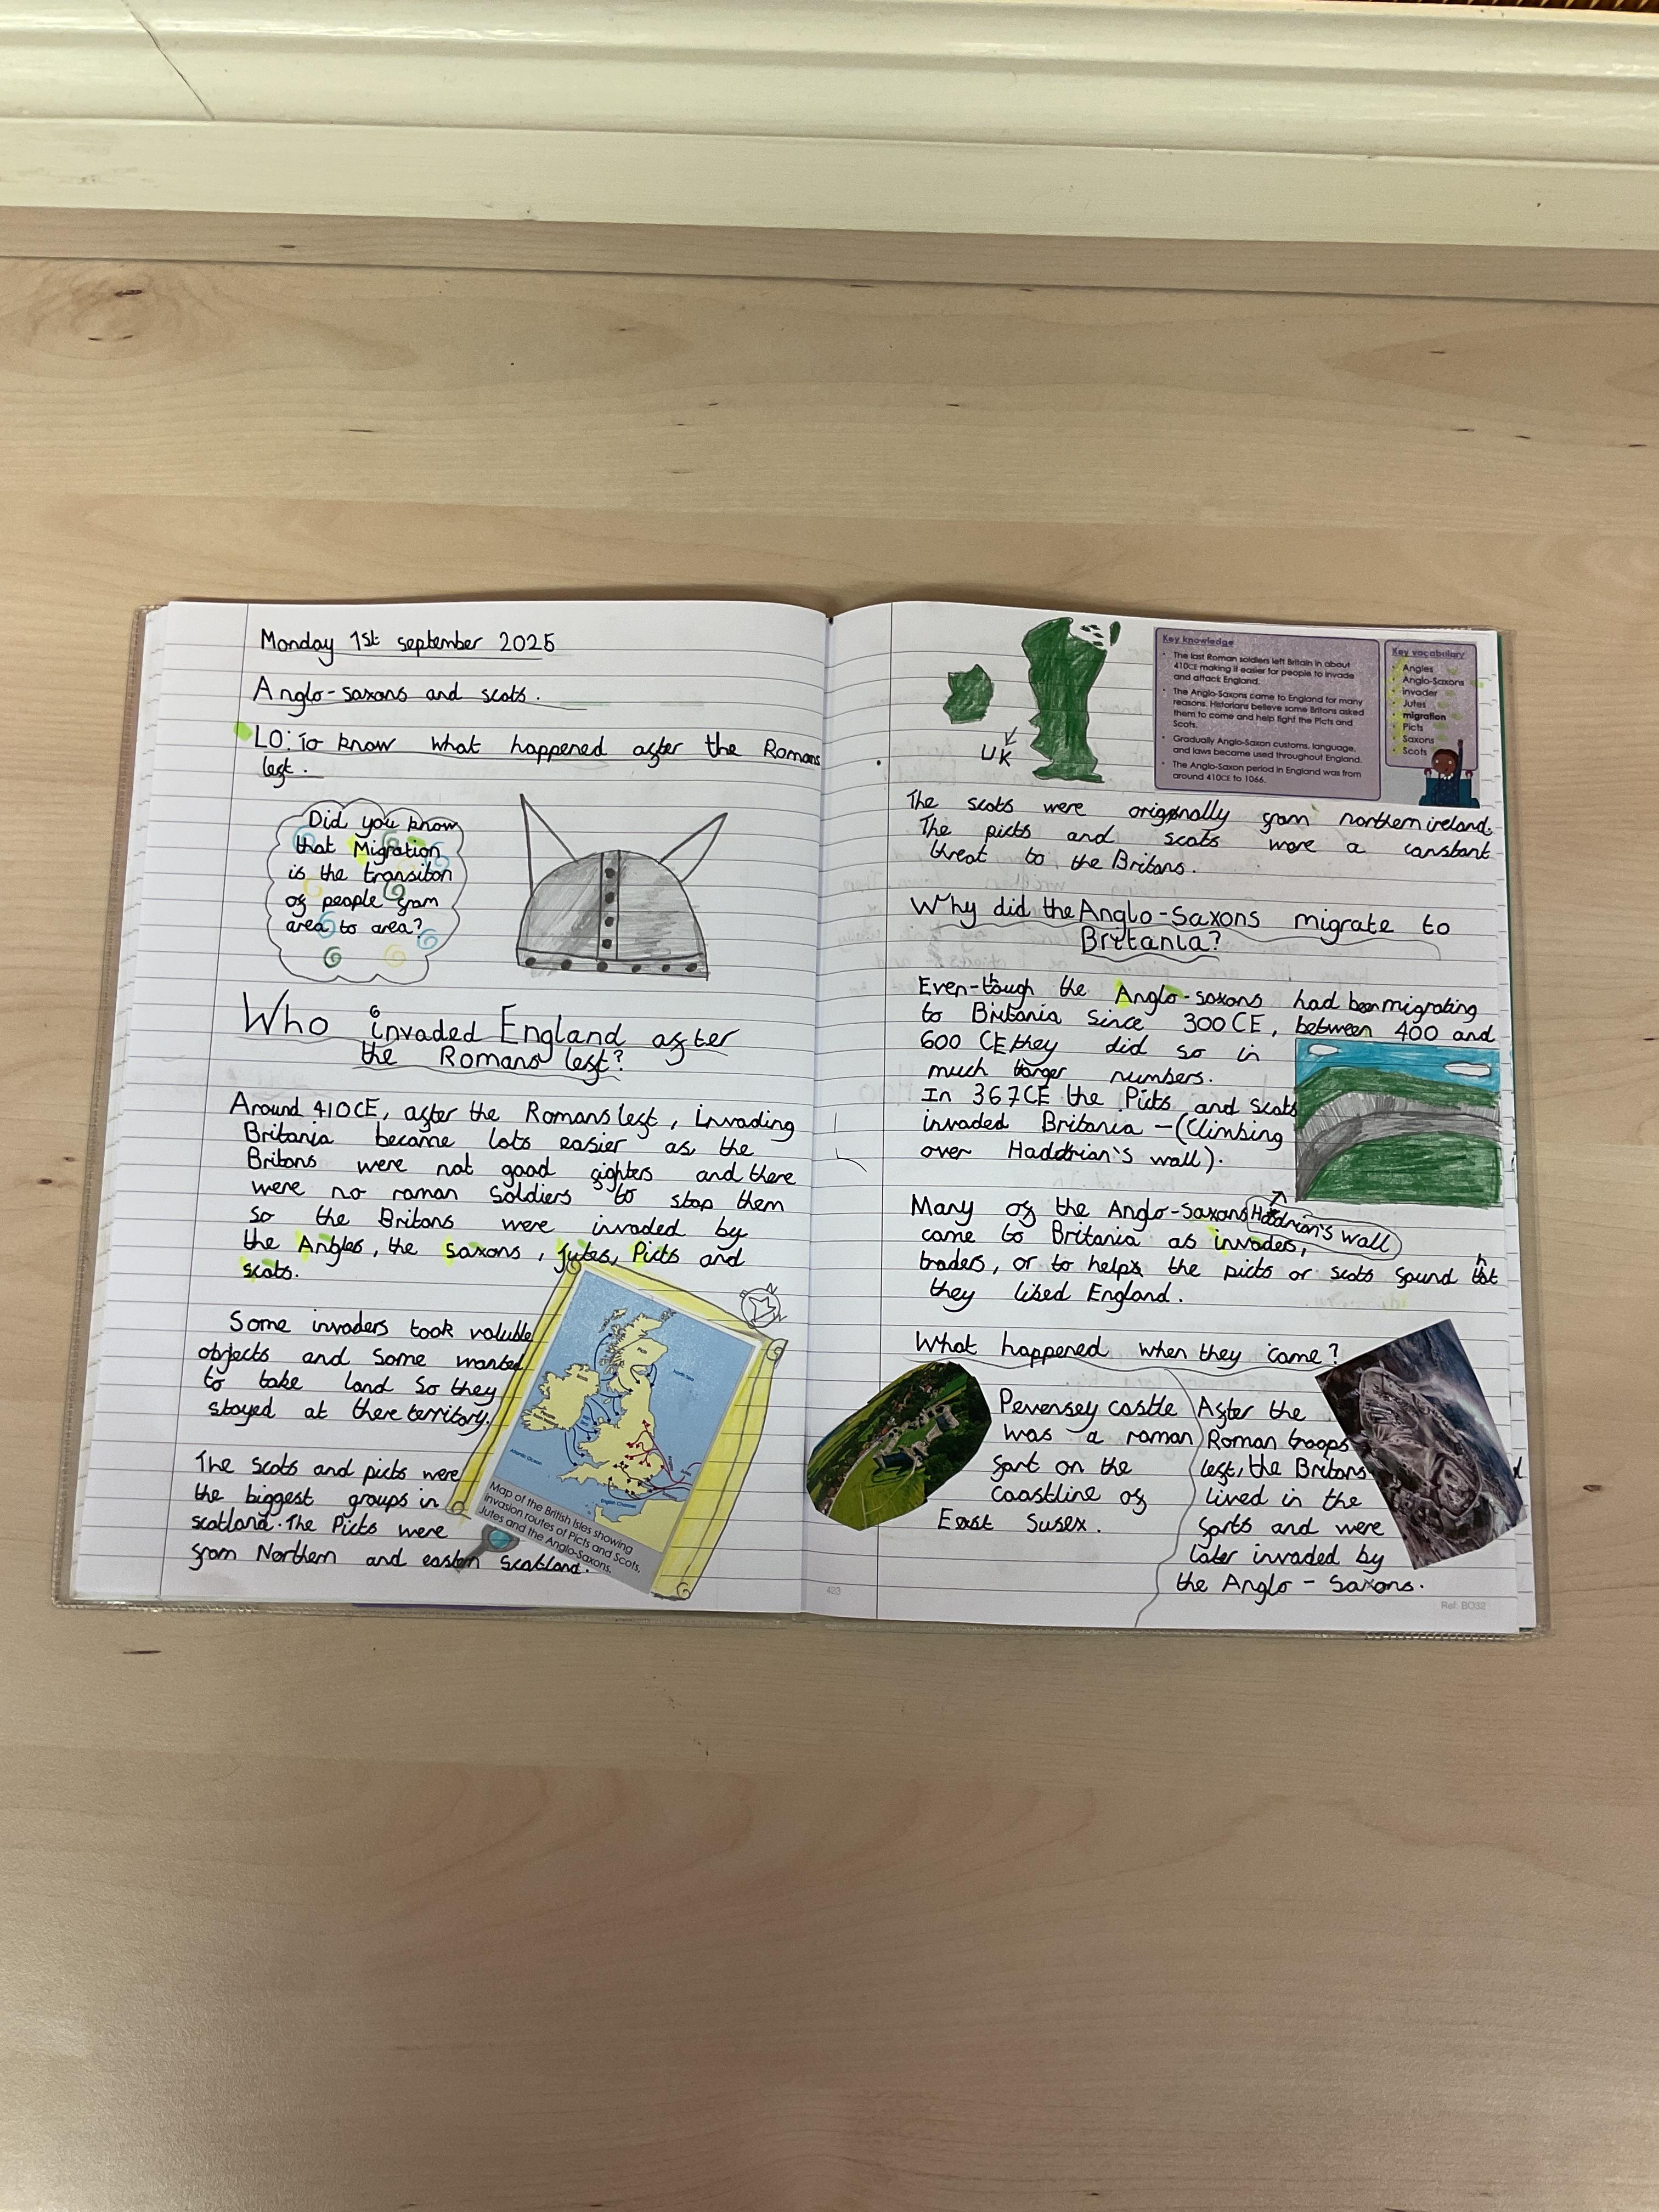 Monday 1st september 2025
Anglo-saxons and scots.
LO: To know what happened after the Romans
left.
Did you know
that Migration
is the transiton
of people from
area to area?
Who invaded England after
the Romans left?
Around 410CE, after the Romans left, invading
Britania became lots easier as the
Britons were not good fighters and there
were no roman soldiers to stop them
so the Britons were invaded by
the Angles, the saxons, jutes, Picts and
scots.
Some invaders took valuble
objects and some wanted
to take land so they
stayed at there territory.
The scots and picts were
the biggest groups in
scotland. The Picts were
from Northern and eastern Scotland.
Map of the British Isles showing
invasion routes of Picts and Scots,
Jutes and the Anglo-Saxons.
North Sea
Atlantic Ocean
English Channel
423
UK
Key knowledge
• The last Roman soldiers left Britain in about
410CE making it easier for people to invade
and attack England.
• The Anglo-Saxons came to England for many
reasons. Historians believe some Britons asked
them to come and help fight the Picts and
Scots.
• Gradually Anglo-Saxon customs, language,
and laws became used throughout England.
• The Anglo-Saxon period in England was from
around 410CE to 1066.
Key vocabulary
• Angles
• Anglo-Saxons
• invader
• Jutes
• migration
• Picts
• Saxons
• Scots
The scots were originally from northern ireland.
The picts and scots were a constant
threat to the Britons.
Why did the Anglo-saxons migrate to
Britania?
Even-tough the Anglo-saxons had been migrating
to Britania since 300CE, between 400 and
600 CE they did so in
much larger numbers.
In 367CE the Picts and scots
invaded Britania - (Climbing
over Haddrian's wall).
Haddrian's wall
Many of the Anglo-saxons
came to Britania as invaders,
traders, or to help the picts or scots found that
they liked England.
What happened when they came?
Pevensey castle
was a roman
fort on the
coastline of
East Susex.
After the
Roman troops
left, the Britons
lived in the
forts and were
later invaded by
the Anglo - saxons.
Ref: BO32